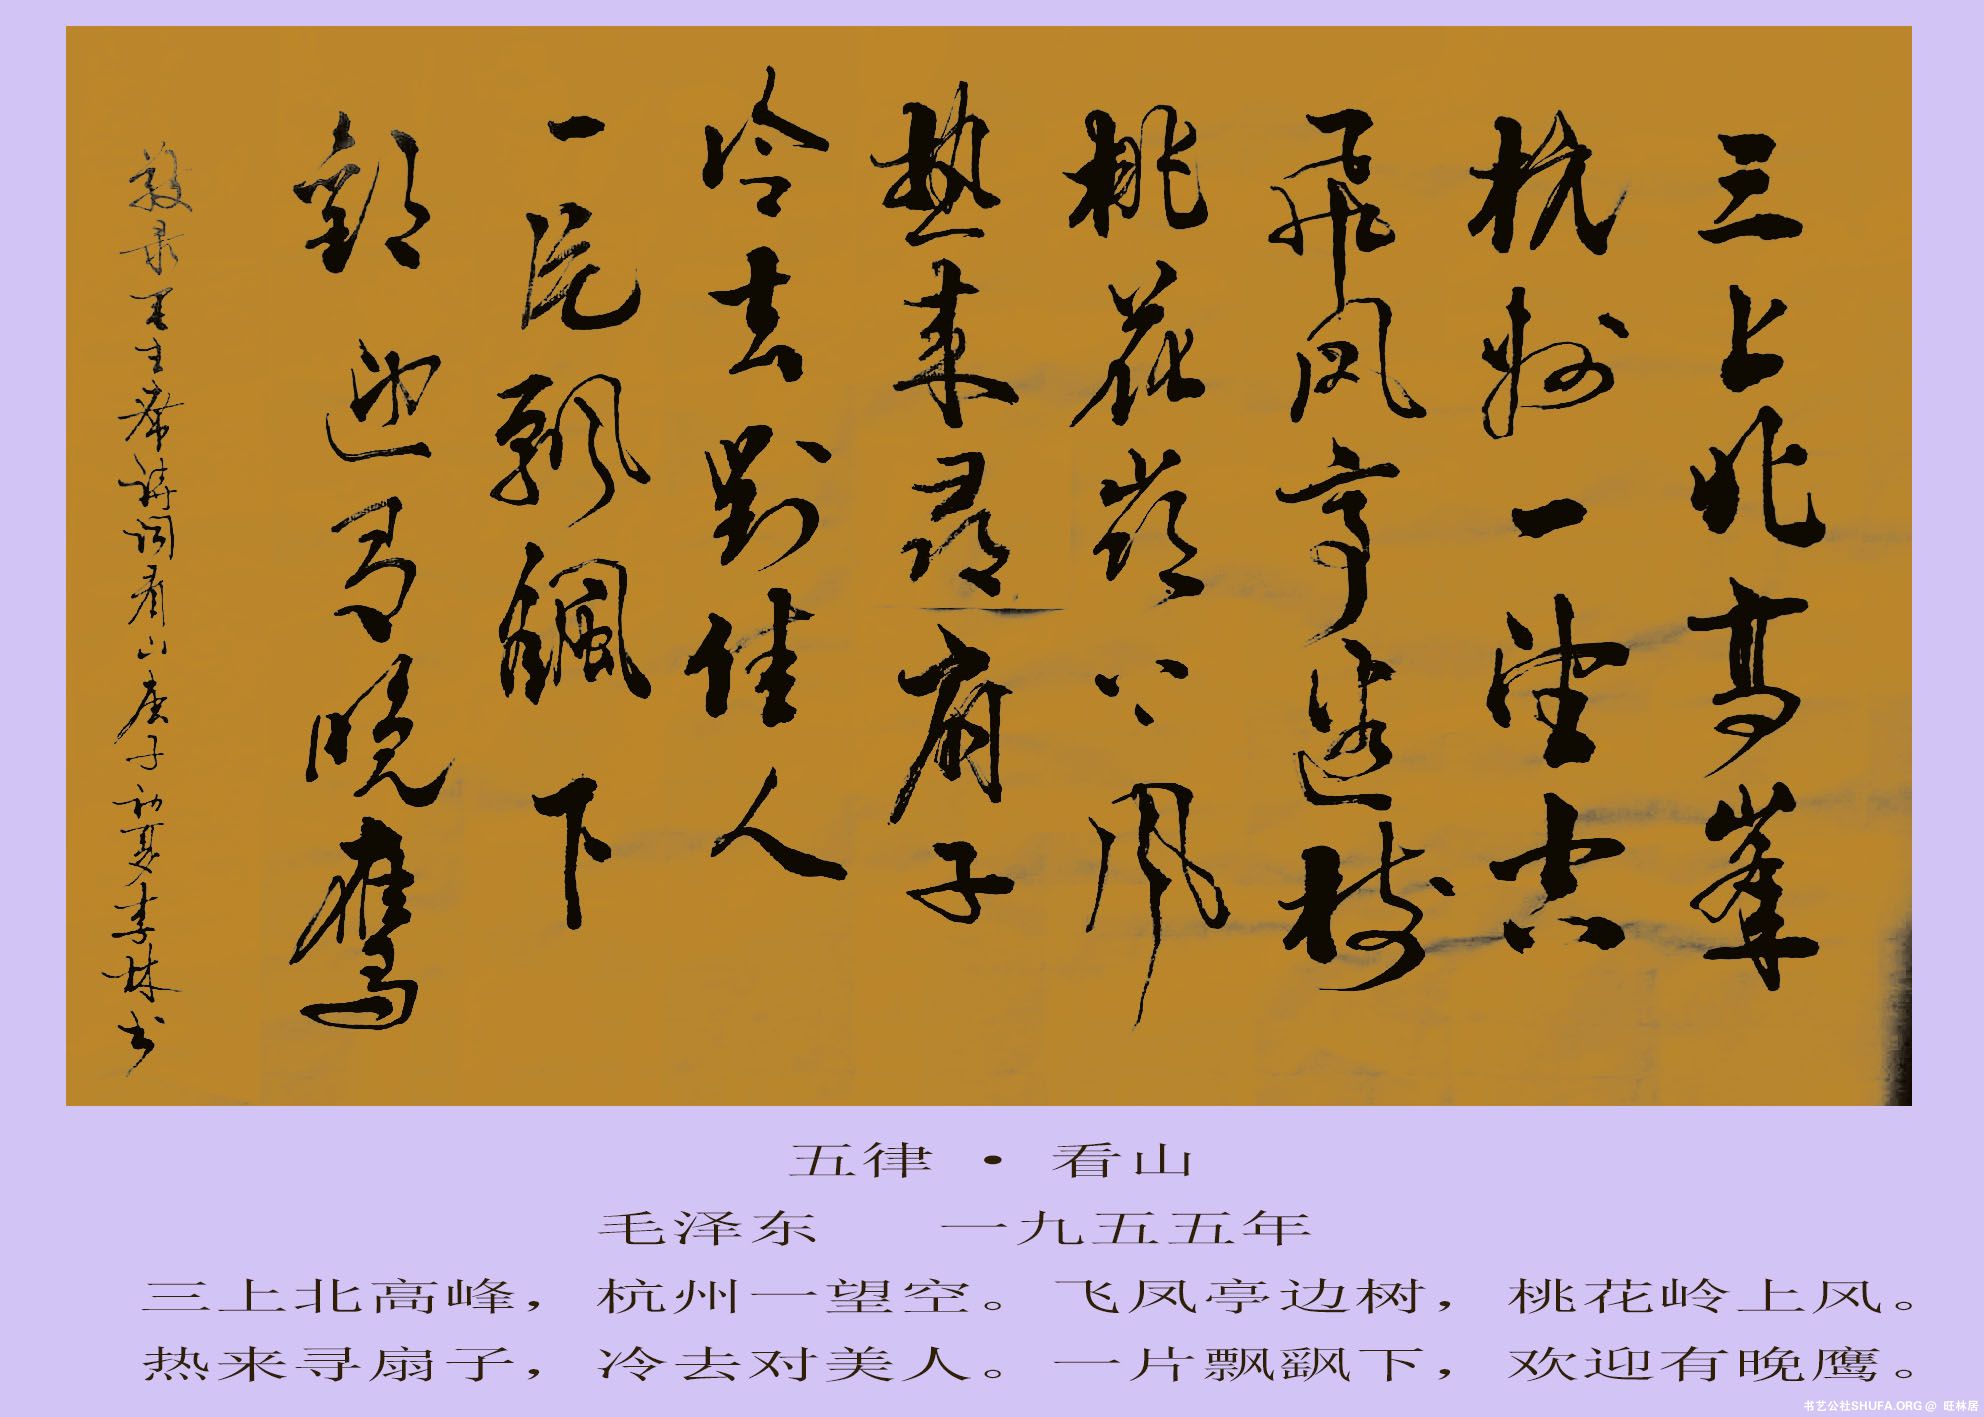 三上北高峯
杭州一望空
飛凤亭邊樹
桃花嶺上風
熱來尋扇子
冷去對佳人
一片飄飖下
歡迎有晚鷹
敬录毛主席诗词看山庚子初夏李林书
五律 · 看山
毛泽东 一九五五年
三上北高峰，杭州一望空。飞凤亭边树，桃花岭上风。
热来寻扇子，冷去对美人。一片飘飖下，欢迎有晚鹰。
书艺公社SHUFA.ORG @ 旺林居